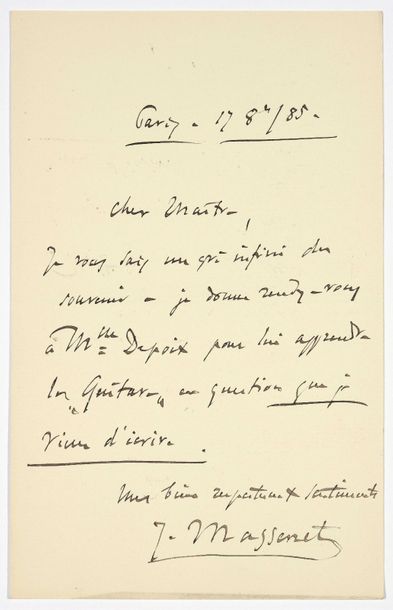 Paris - 17 8re/85 -
Cher Maître,
Je vous sais un gré infini du
souvenir - je donne rendez-vous
à Mlle Depoix pour lui apprendre
la "Guitare" en question que je
viens d'écrire.
Mes biens respectueux sentiments
J. Massenet